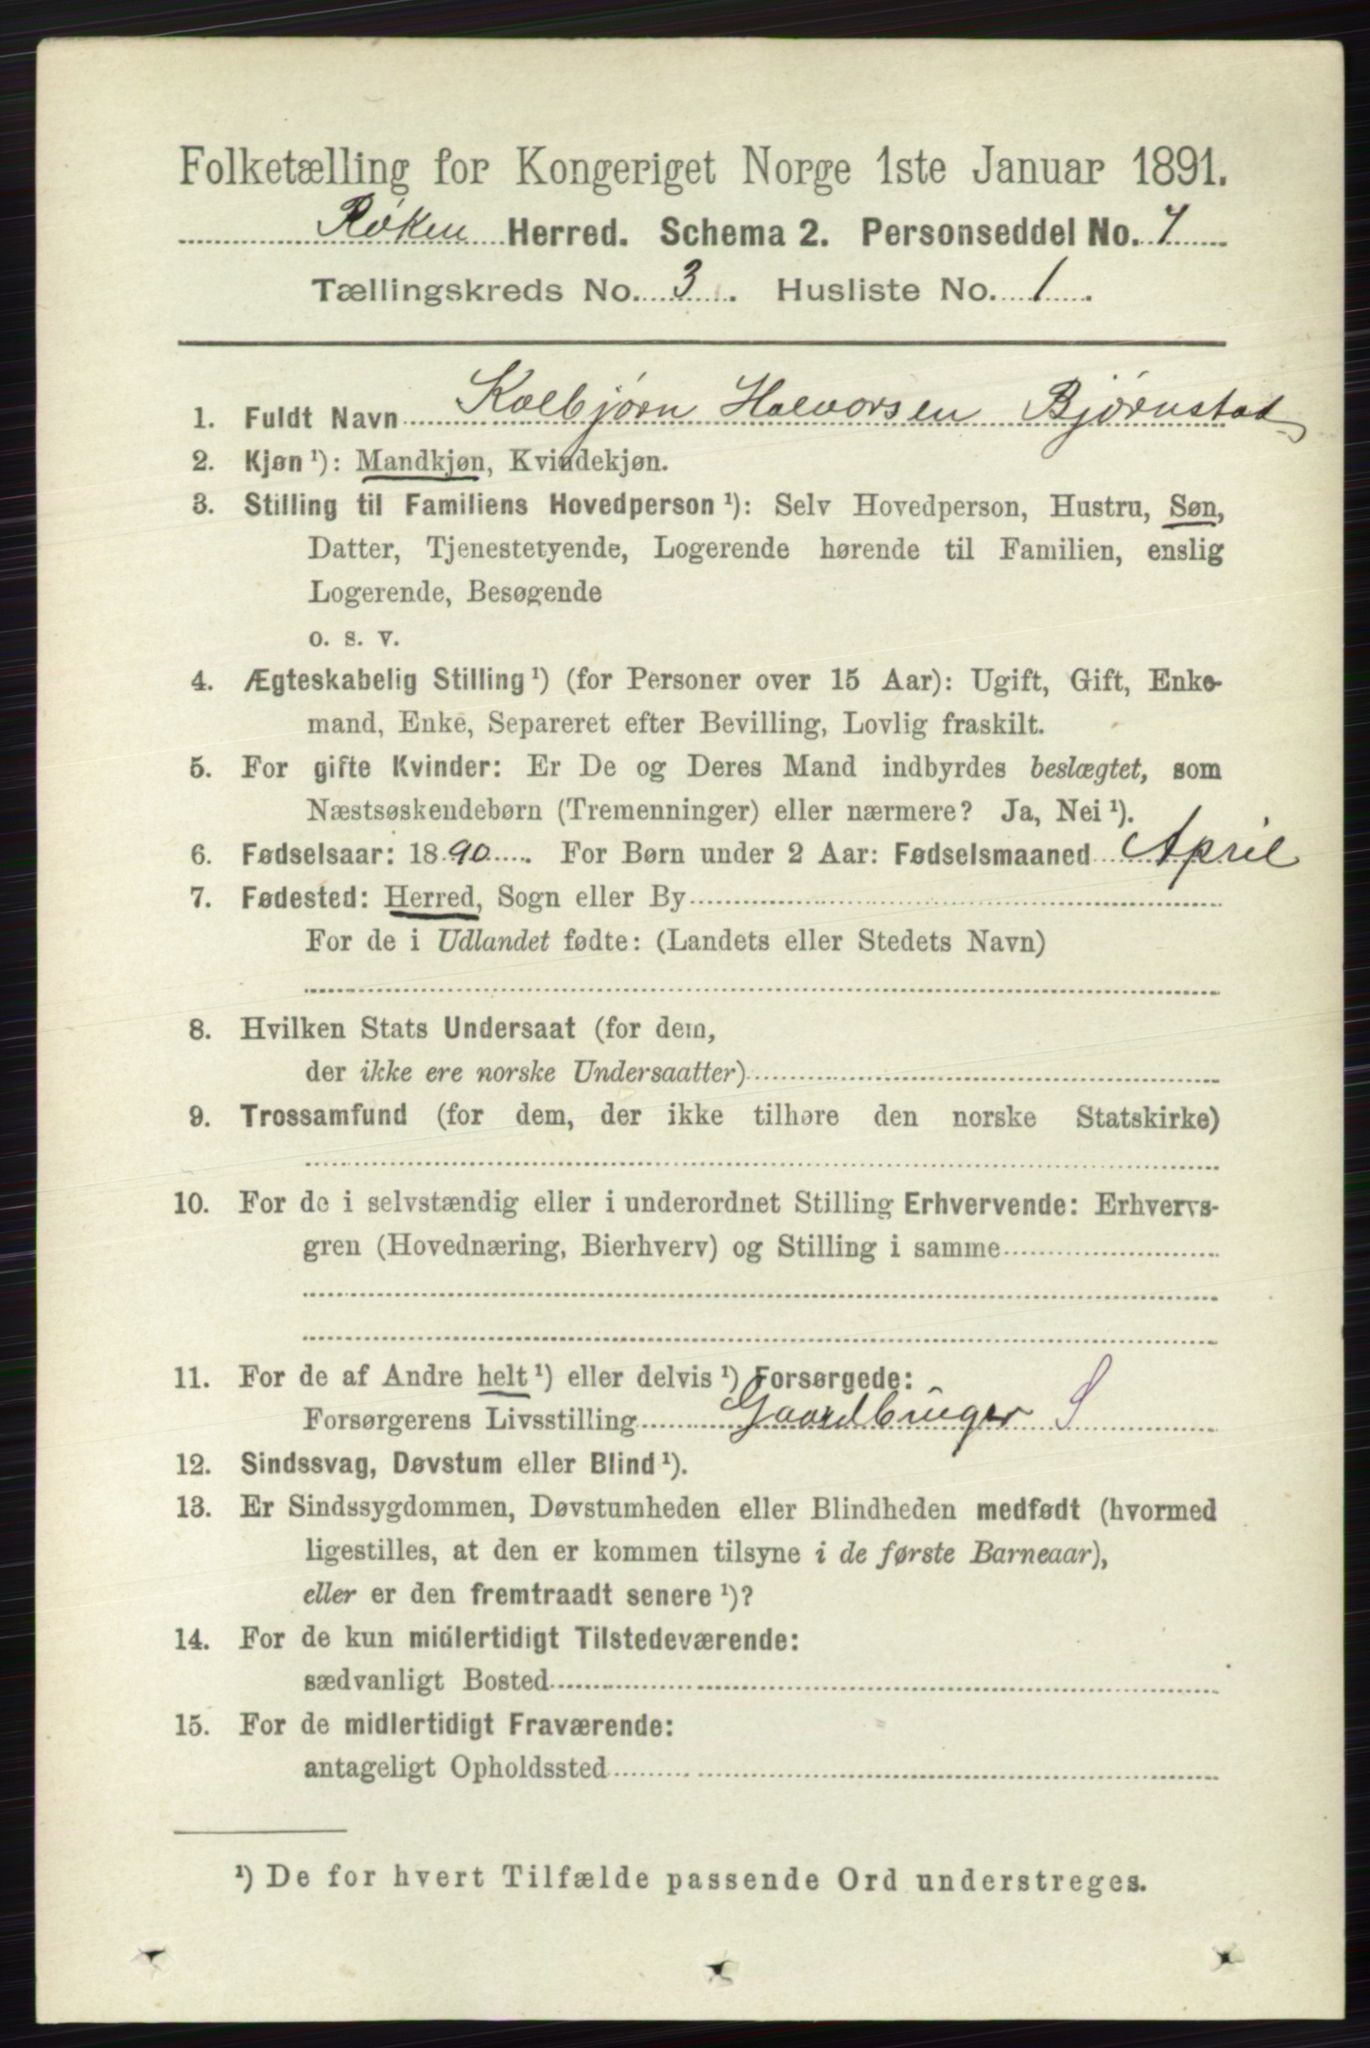 Folketælling for Kongeriget Norge 1ste Januar 1891.
Røken Herred. Schema 2. Personseddel No. 7
Tællingskreds No. 3. Husliste No. 1.
1. Fuldt Navn Kolbjørn Halvorsen Bjørnstad
2. Kjøn ¹): Mandkjøn, Kvindekjøn.
3. Stilling til Familiens Hovedperson ¹): Selv Hovedperson, Hustru, Søn,
Datter, Tjenestetyende, Logerende hørende til Familien, enslig
Logerende, Besøgende
o. s. v.
4. Ægteskabelig Stilling ¹) (for Personer over 15 Aar): Ugift, Gift, Enke-
mand, Enke, Separeret efter Bevilling, Lovlig fraskilt.
5. For gifte Kvinder: Er De og Deres Mand indbyrdes beslægtet, som
Næstsøskendebørn (Tremenninger) eller nærmere? Ja, Nei ¹).
6. Fødselsaar: 1890. For Børn under 2 Aar: Fødselsmaaned April
7. Fødested: Herred, Sogn eller By
For de i Udlandet fødte: (Landets eller Stedets Navn)
8. Hvilken Stats Undersaat (for dem,
der ikke ere norske Undersaatter)
9. Trossamfund (for dem, der ikke tilhøre den norske Statskirke)
10. For de i selvstændig eller i underordnet Stilling Erhvervende: Erhvervs-
gren (Hovednæring, Bierhverv) og Stilling i samme
11. For de af Andre helt ¹) eller delvis ¹) Forsørgede:
Forsørgerens Livsstilling Gaardbruger S
12. Sindssvag, Døvstum eller Blind ¹).
13. Er Sindssygdommen, Døvstumheden eller Blindheden medfødt (hvormed
ligestilles, at den er kommen tilsyne i de første Barneaar),
eller er den fremtraadt senere ¹)?
14. For de kun midlertidigt Tilstedeværende:
sædvanligt Bosted
15. For de midlertidigt Fraværende:
antageligt Opholdssted
¹) De for hvert Tilfælde passende Ord understreges.